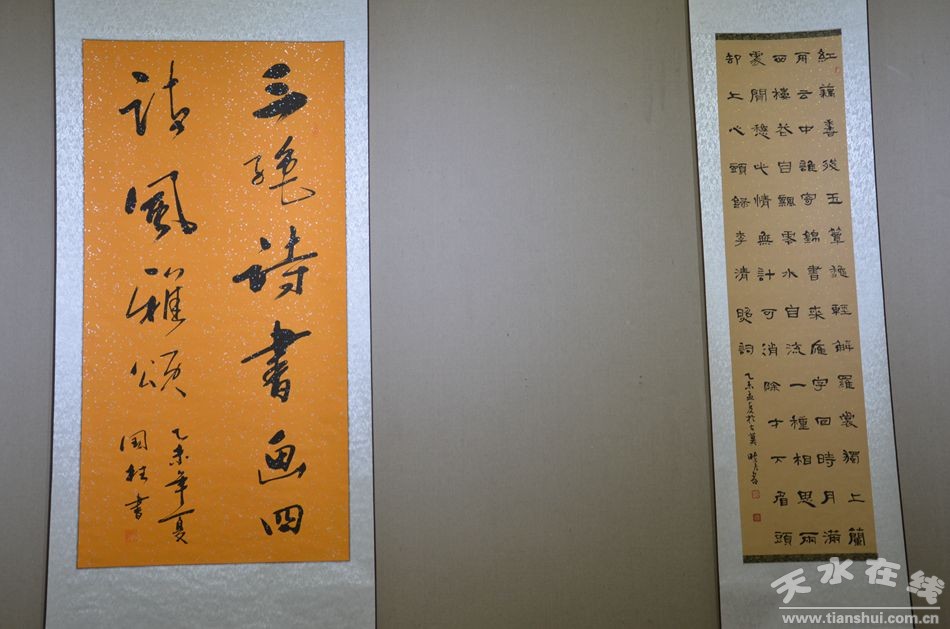 三絶詩書画四
诗風雅頌
乙未年夏
国柱書
紅藕香殘玉簟秋輕解羅裳獨上蘭
舟云中誰寄錦書来雁字回時月滿
西樓花自飄零水自流一種相思兩
處閒愁此情無計可消除才下眉頭
却上心頭録李清照詞
乙未孟夏於古冀
天水在线
www.tianshui.com.cn